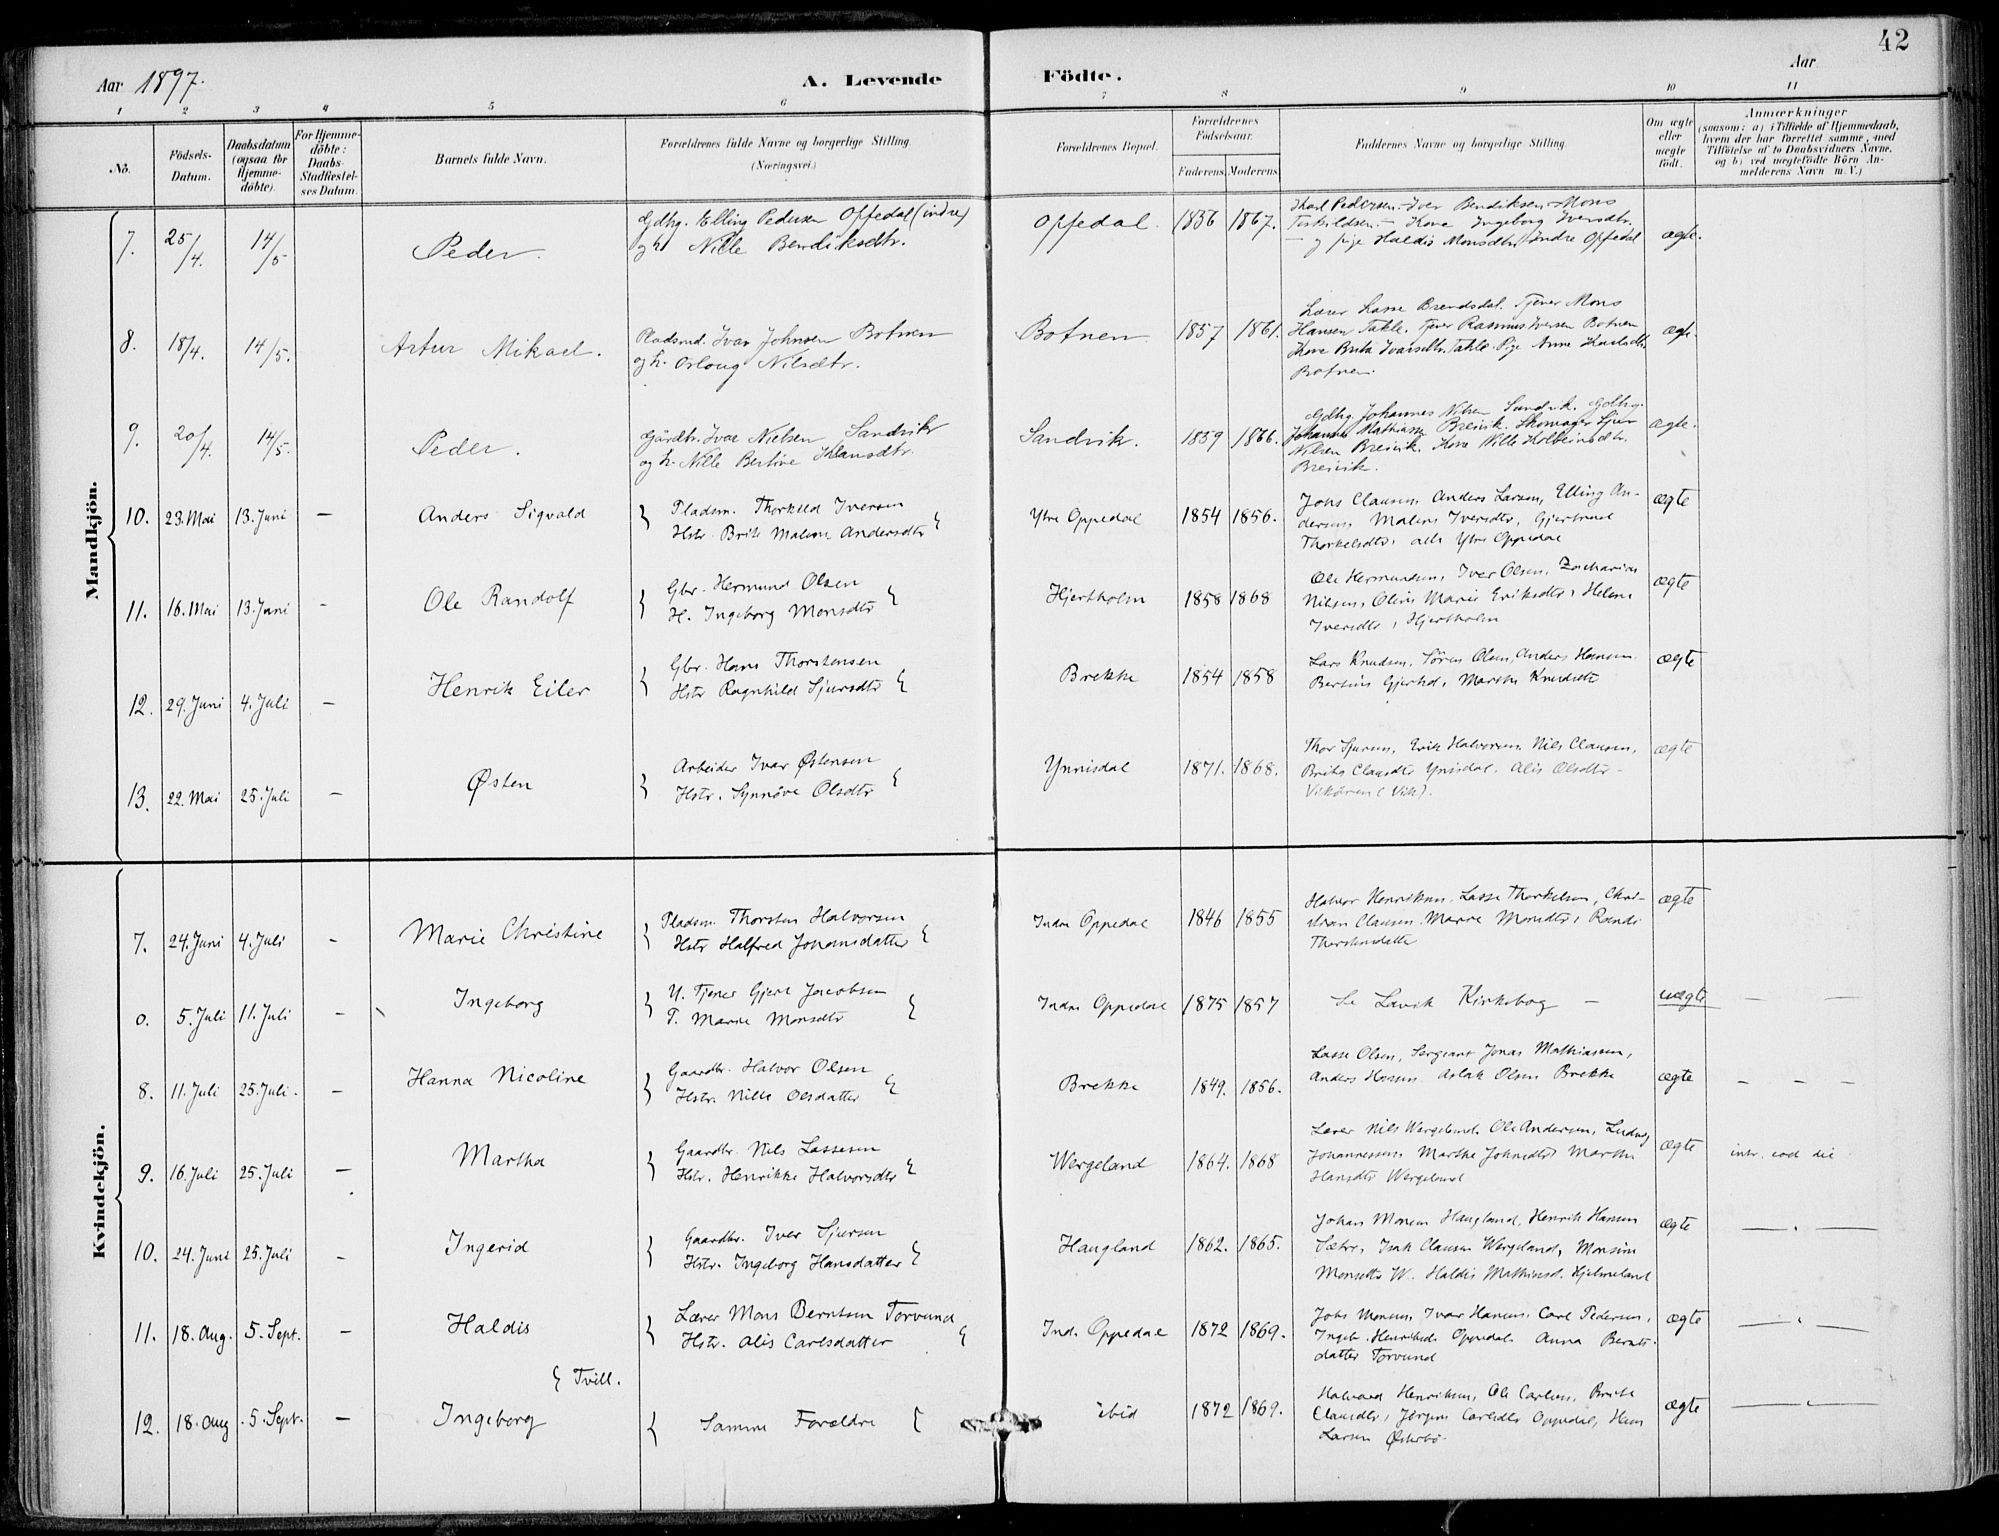 42
Aar 1897. A. Levende Födte. Aar
1 2 3 4 5 6 7 8 9 10 11
No. Födsels-Datum. Daabsdatum (ogsaa for Hjemme-döbte). For Hjemme-döbte: Daabs-Stadfæstel-ses Datum. Barnets fulde Navn. Forældrenes fulde Navne og borgerlige Stilling. (Næringsvei.) Forældrenes Bopæl. Forældrenes Födselsaar. Faderens Moderens Faddernes Navne og borgerlige Stilling. Om ægte eller uægte födt. Anmærkninger (saasom: a) i Tilfælde af Hjemmedaab, hvem der har forrettet samme, med Tilföielse af to Daabsvidners Navne, og b) ved uægtefödte Börn An-melderens Navn m. V.)
Mandkjön.
7. 25/4. 14/5 Peder. Gdbg. Elling Pedersen Opfedal (indre) Opfedal. 1836 1867. Karl Pedersen. Iver Bendiksen. Mons ægte.
og h. Nille Bendiksdtr. Terkildsen. Kone Ingeborg Iversdtr.
og pige Haldis Monsdtr. Indre Opfedal
8. 18/4. 14/5. Artur Mikael. Pladsmd. Ivar Johnsen Botnen Botnen 1857 1861. Lærer Lasse Brendsdal. Tjener Mons ægte.
og h. Orloug Nilsdtr. Hansen Takle. Tjener Rasmus Iversen Botnen
Kone Brita Ivarsdtr. Takle. Pige Anne Karlsdtr.
Botnen.
9. 20/4. 14/5. Peder. Gårdbr. Ivar Nielsen Sandvik Sandvik. 1859 1866. Gdbg. Johannes Nilsen Sandvik. Gdbg. ægte.
og h. Nille Bertine Hansdtr. Johannes Mathiasse Breivik. Skomager Sjur
Nilsen Breivik. Kone Nille Kolbeinsdtr.
Breivik.
10. 23. Mai 13. Juni — Anders Sigvald Pladsm. Thorkild Iversen Ytre Oppedal 1854 1856. Johs Clausen, Anders Larsen, Elling An- ægte
Hstr. Brite Malene Andersdtr dersen, Malene Iversdtr, Gjertrud
Thorkelsdtr, alle Ytre Oppedal
11. 16. Mai 13. Juni — Ole Randolf Gbr. Hermund Olsen Hjertholm 1858 1868 Ole Hermundsen, Iver Olsen, Zacharias ægte
H. Ingeborg Monsdtr Nilsen, Oline Marie Eriksdtr, Helene
Iversdtr, Hjertholm
12. 29. Juni 4. Juli — Henrik Eiler Gbr. Hans Thorstensen Brekke 1854 1858 Lars Knudsen, Sören Olsen, Anders Hansen ægte
Hstr Ragnhild Sjursdtr Marthe Knudsdtr
13. 22. Mai 25. Juli — Østen Arbeider Ivar Østensen Ynnisdal 1871. 1868. Thor Sjursen, Erik Halvorsen, Nils Clausen, ægte
Hstr. Synnöve Olsdtr Brite Clausdtr Ynnisdal. Alis Olsdtr
Vikören (Vik).
Kvindekjön.
7. 24. Juni 4. Juli — Marie Christine Pladsm. Thorsten Halvorsen Indre Oppedal 1846 1855 Halvor Henriksen, Lasse Thorkelsen, Chri- ægte
Hstr Halfred Johansdatter stian Clausen, Marie Monsdtr, Randi
Thorstensdatter
0. 5. Juli 11. Juli — Ingeborg U. Tjener Gjert Jacobsen Indre Oppedal 1875 1857 Se Lavik Kirkebog — uægte — —
P. Marie Monsdtr
8. 11. Juli 25. Juli. — Hanna Nicoline Gaardbr. Halvor Olsen Brekke 1849. 1856. Lasse Olsen, Sergeant Jonas Mathiassen, ægte — — —
Hstr. Nille Olsdatter Anders Hansen Aslak Olsen Brekke
9. 16. Juli 25. Juli — Martha Gaardbr. Nils Lassesen Wergeland 1864. 1868 Lærer Nils Wergeland, Ole Andersen, Ludvig ægte intr. eod die
Hstr. Henrikke Halvorsdtr Johannessen Marthe Johnsdtr Marthe
Hansdtr Wergeland
10. 24. Juni 25. Juli — Ingerid Gaardbr. Iver Sjursen Haugland 1862. 1865. Johan Monsen Haugland, Henrik Hansen ægte — „ —
Hstr. Ingeborg Hansdatter Sæter, Isak Clausen Wergeland, Monsine
Monsdtr W. Haldis Mathiasd. Hjelmeland
11. 18. Aug. 5. Sept. — Haldis Lærer Mons Berntsen Torvund Ind. Oppedal 1872 1869. Johs Monsen, Ivar Hansen, Carl Pedersen, ægte — „ —
Hstr. Alis Carlsdatter Ingeb. Henriksd. Oppedal. Anna Bernts-
datter Torvund
Tvill.
12. 18. Aug 5. Sept. — Ingeborg Samme Forældre ibid 1872 1869. Halvard Henriksen, Ole Carlsen, Brite ægte — „ —
Clausdtr, Jörgine Carlsdtr Oppedal, Hans
Larsen Østerbö